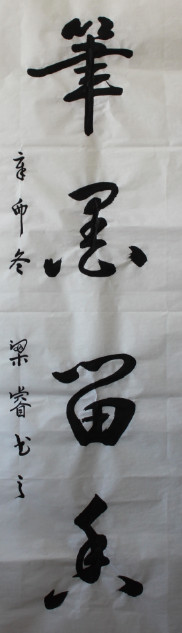 筆墨留香
辛卯冬 梁睿书之